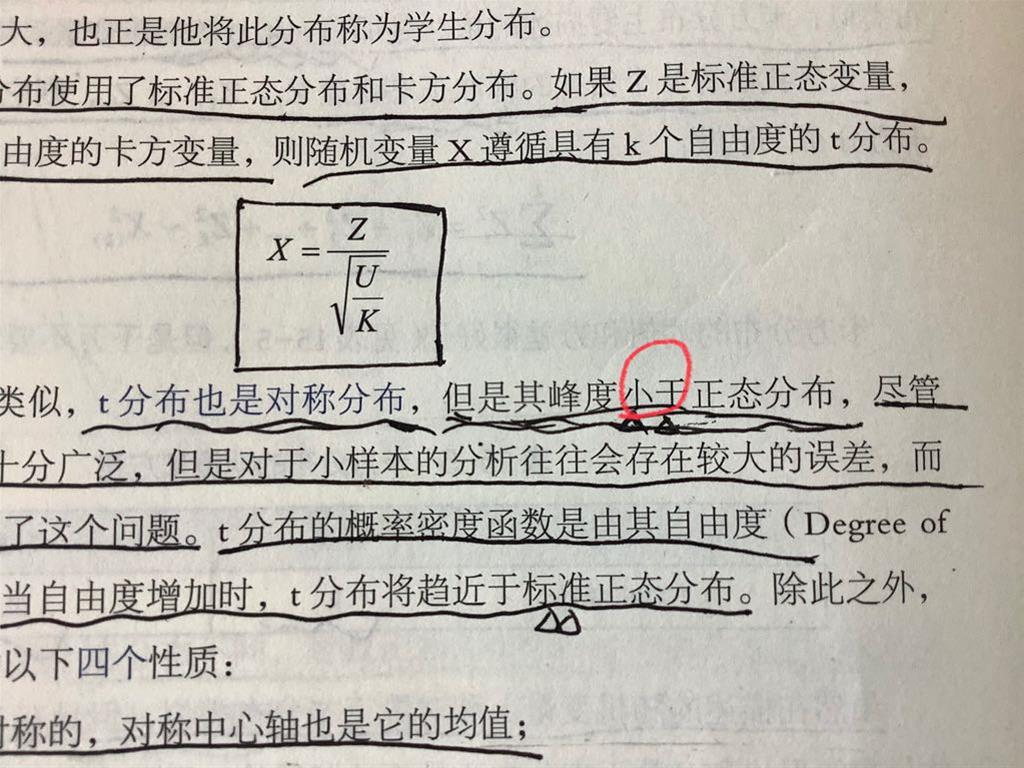 大，也正是他将此分布称为学生分布。
分布使用了标准正态分布和卡方分布。如果 Z 是标准正态变量，
由度的卡方变量，则随机变量 X 遵循具有 k 个自由度的 t 分布。
X = Z / √(U/K)
类似，t 分布也是对称分布，但是其峰度小于正态分布，尽管
十分广泛，但是对于小样本的分析往往会存在较大的误差，而
了这个问题。t 分布的概率密度函数是由其自由度（Degree of
当自由度增加时，t 分布将趋近于标准正态分布。除此之外，
以下四个性质：
对称的，对称中心轴也是它的均值；